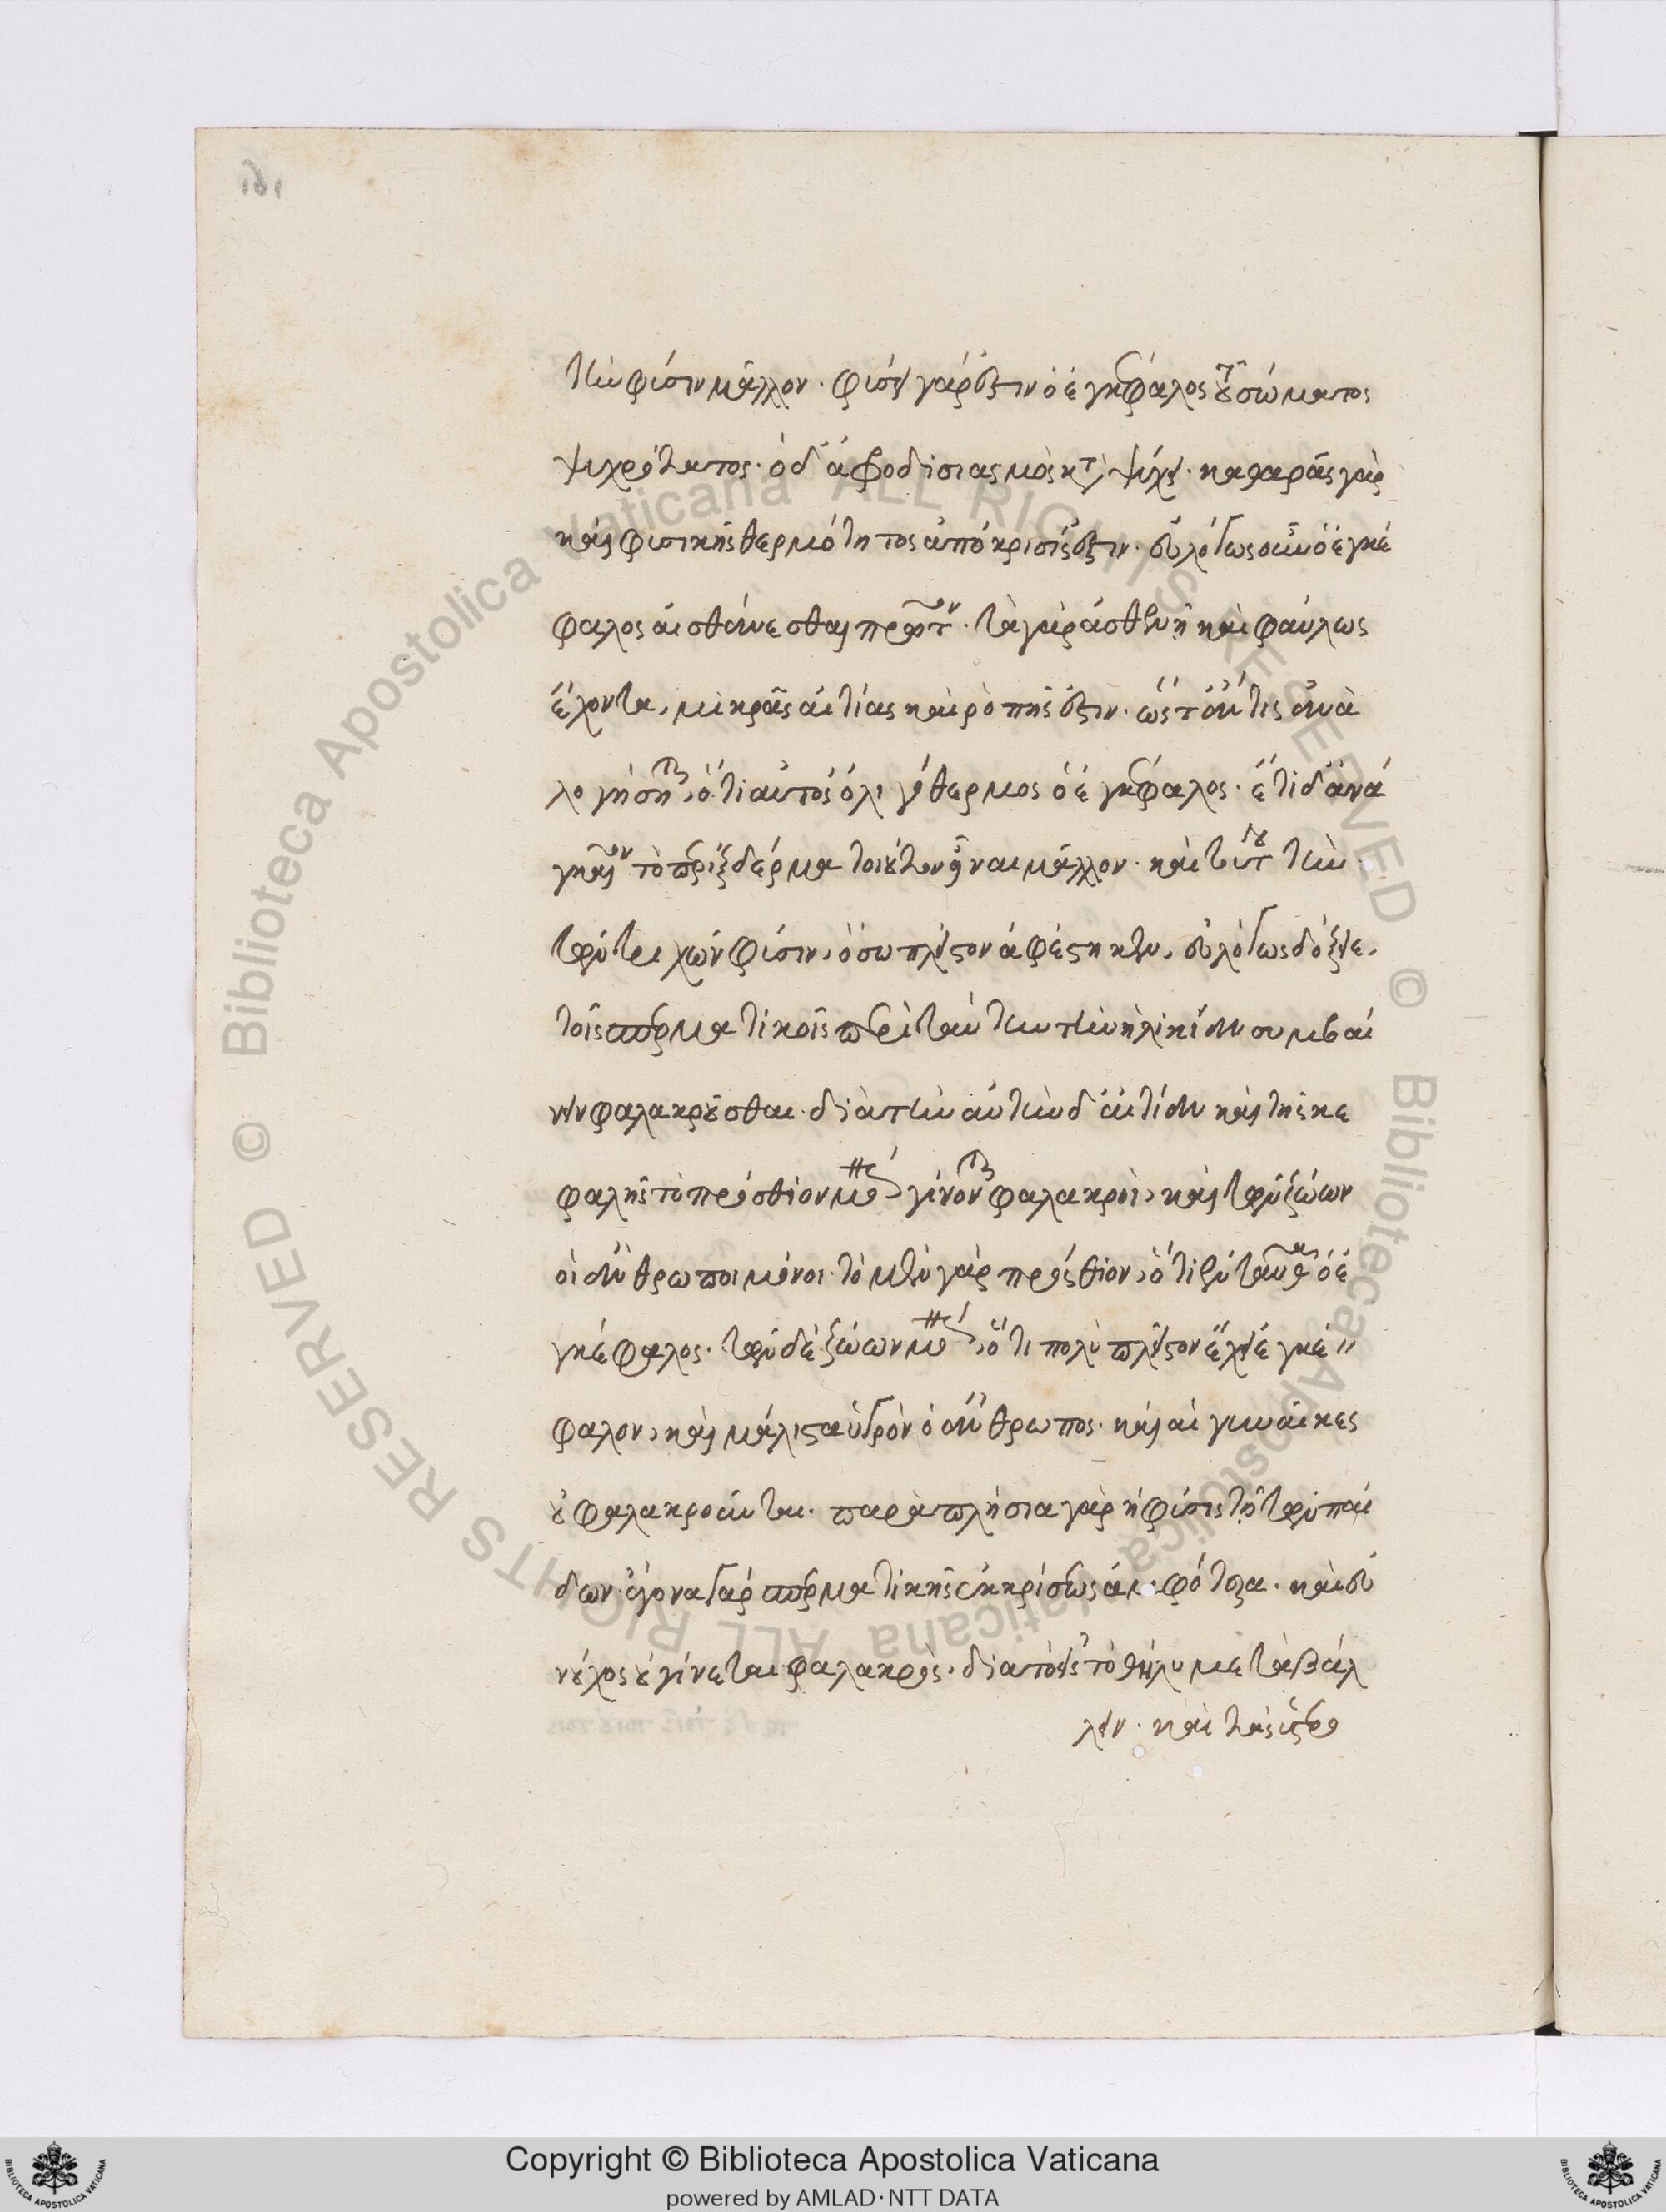 τὴν φύσιν μᾶλλον· φύσει γάρ ἐστιν ὁ ἐγκέφαλος τοῦ σώματος
ψυχρότατος· ὁ δ' ἀφροδισιασμὸς καταψύχει· καθαρᾶς γὰρ
καὶ φυσικῆς θερμότητος ἀπόκρισίς ἐστιν· εὐλόγως οὖν ὁ ἐγκέ
φαλος αἰσθάνεσθαι πρῶτον· τὰ γὰρ ἀσθενῆ καὶ φαύλως
ἔχοντα, μικρᾶς αἰτίας καὶ ῥοπῆς ἐστιν· ὥστ' ἄν τις ἀνα
λογήσηται, ὅτι αὐτὸς ὀλιγόθερμος ὁ ἐγκέφαλος· ἔτι δ' ἀνά
γκαιον τὸ πέριξ δέρμα τοιοῦτον εἶναι μᾶλλον· καὶ τούτου τὴν
τῶν τριχῶν φύσιν, ὅσω πλεῖστον ἀφέστηκεν, εὐλόγως δόξειε,
τοῖς σπερματικοῖς περὶ ταύτην τὴν ἡλικίαν συμβαί
νειν φαλακροῦσθαι· διὰ τὴν αὐτὴν δ' αἰτίαν καὶ τῆς κε
φαλῆς τὸ πρόσθιον μέρος γίνονται φαλακροὶ, καὶ τῶν ζώων
οἱ ἄνθρωποι μόνοι· τὸ μὲν γὰρ πρόσθιον, ὅτι ἐνταῦθα ὁ ἐ
γκέφαλος· τῶν δὲ ζώων μόνος, ὅτι πολὺ πλεῖστον ἔχει ἐγκέ
φαλον, καὶ μάλιστα ὑγρὸν ὁ ἄνθρωπος· καὶ αἱ γυναῖκες
οὐ φαλακροῦνται· παραπλήσια γὰρ ἡ φύσις τῇ τῶν παί
δων· ἄγονα γὰρ σπερματικῆς ἐκκρίσεως ἀμφότερα· καὶ εὐ
νοῦχος οὐ γίνεται φαλακρὸς, διὰ τὸ εἰς τὸ θῆλυ μεταβάλ
λειν· καὶ τὰς ὑστερο